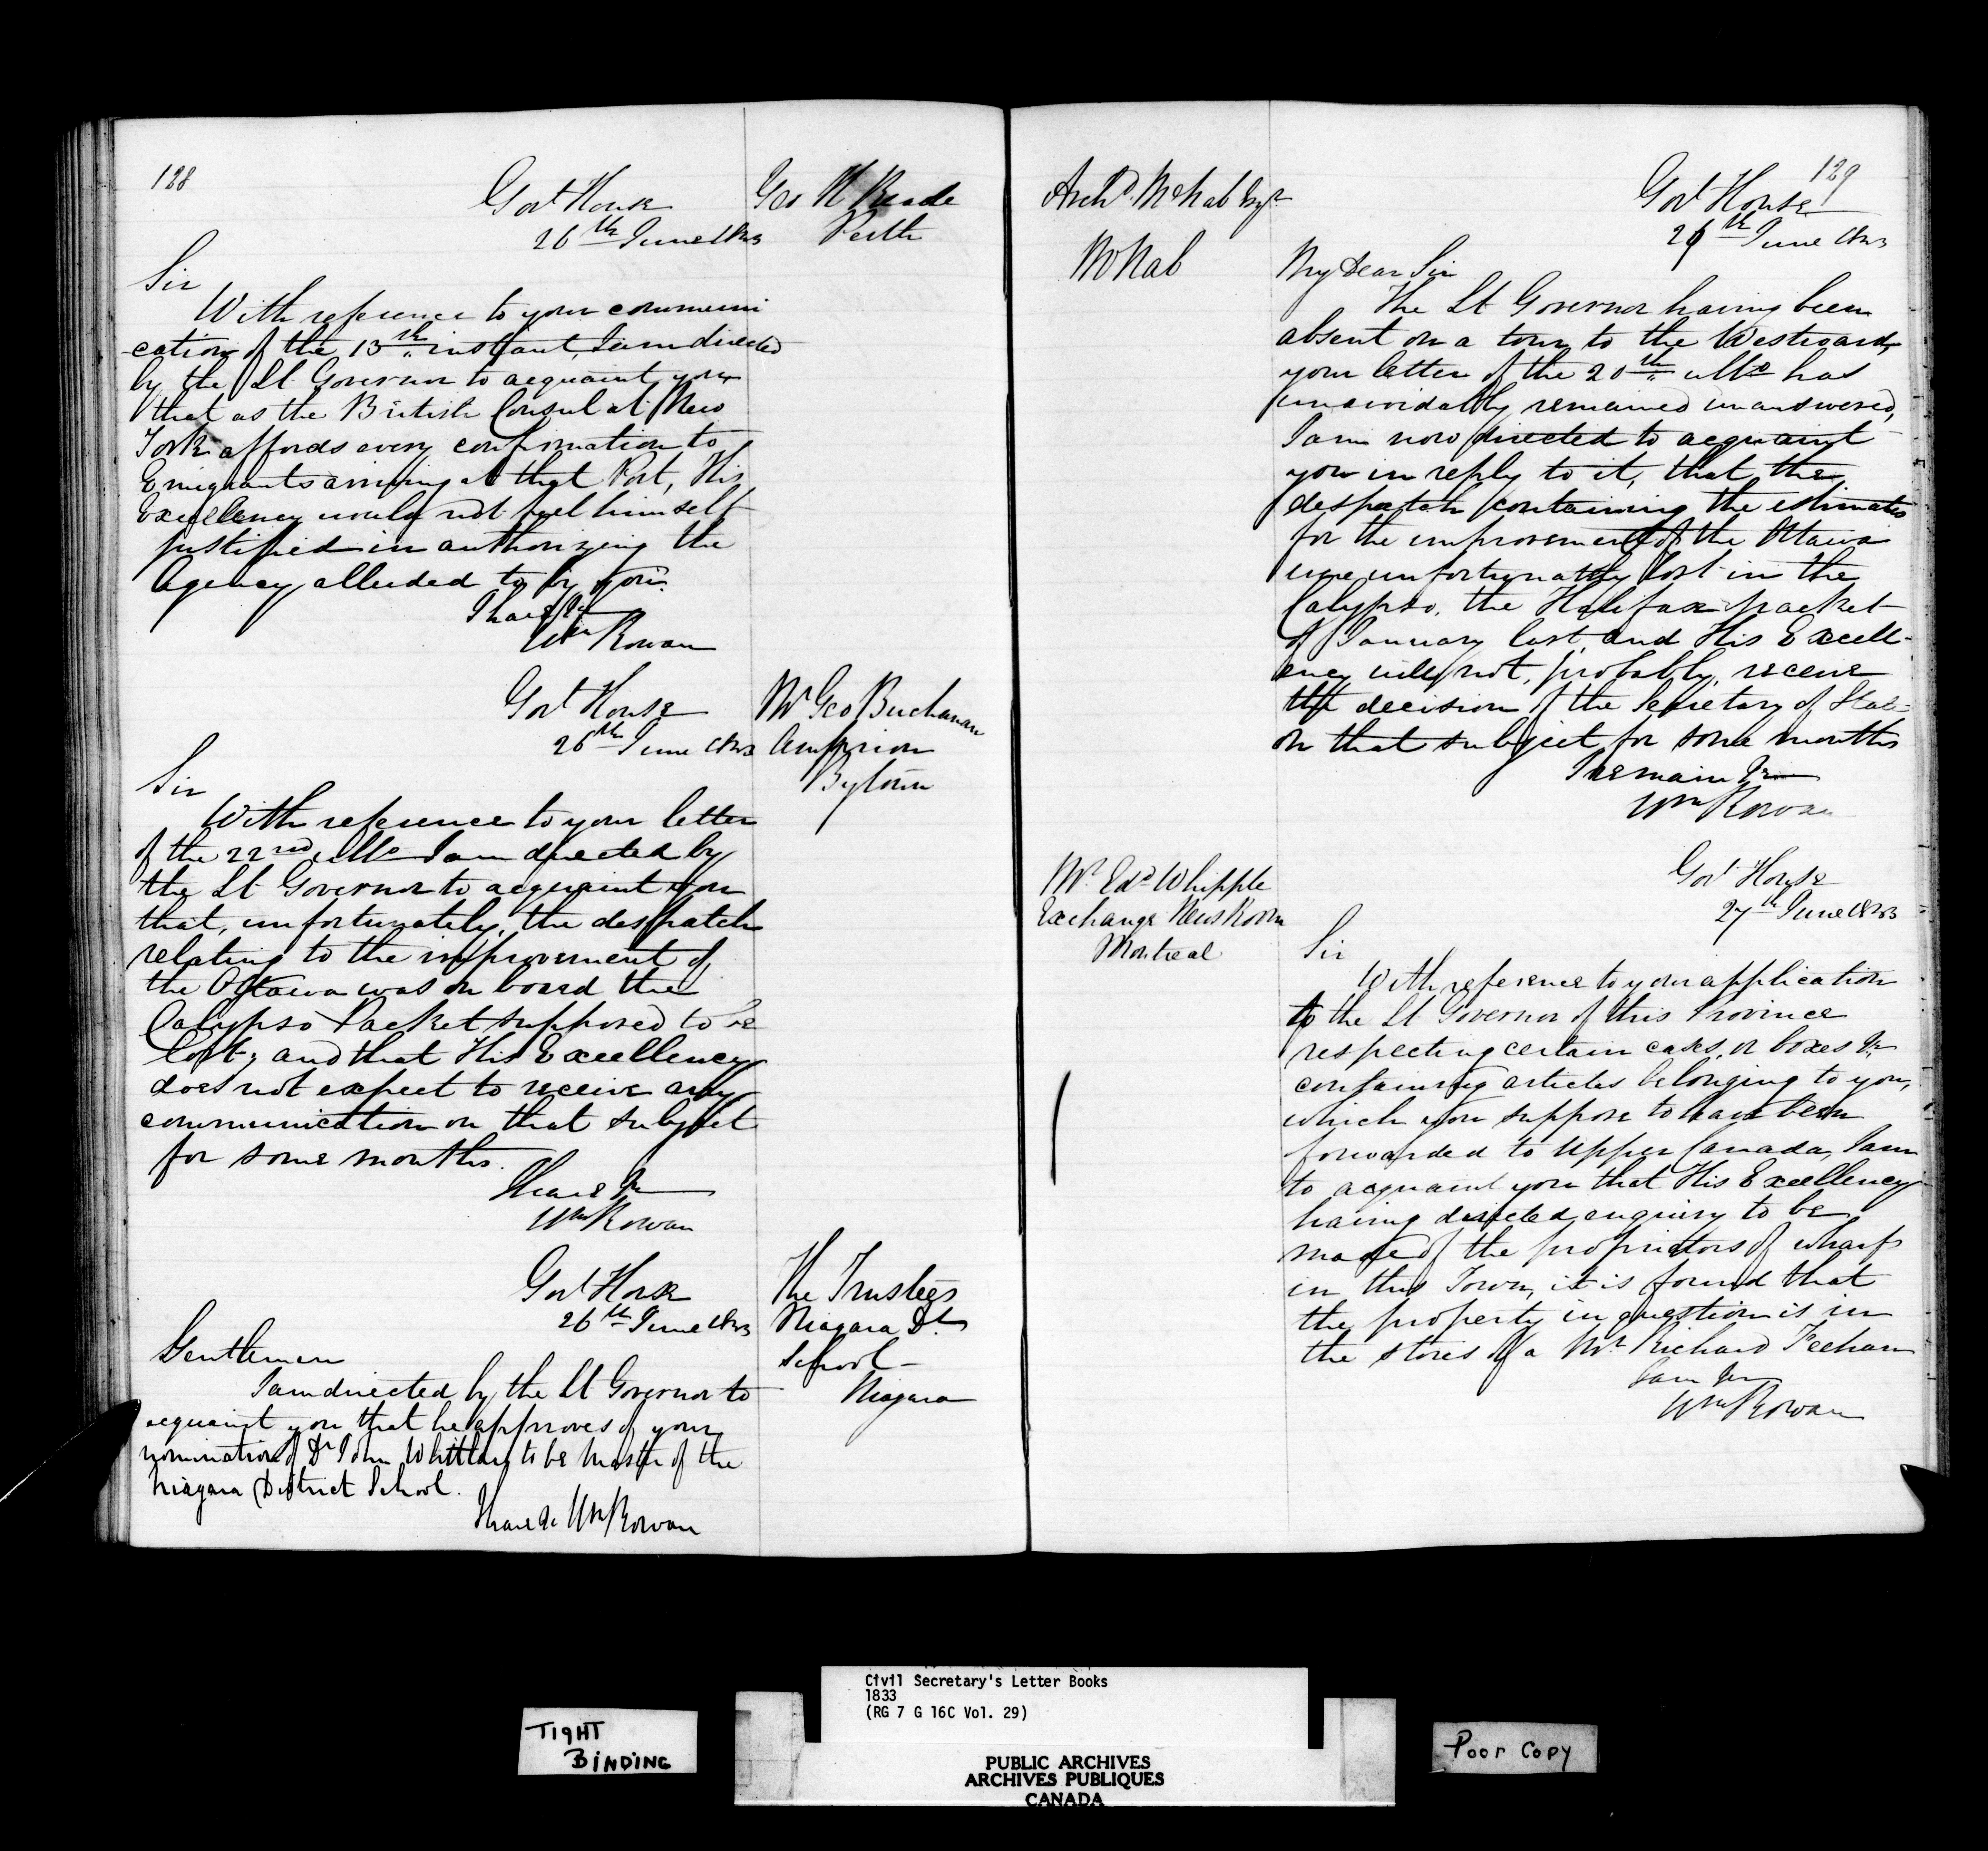 128
Govt House
26th June 1833
Geo H Reade
Perth
Sir
With reference to your communi
cation of the 13th instant, I am directed
by the Lt Governor to acquaint you
that as the British Consul at New
York affords every confirmation to
Emigrants arriving at that Port, His
Excellency would not feel himself
justified in authorizing the
Agency alluded to by you.
I have &c
Wm Rowan
Govt House
26th June 1833
Mr Geo Buchanan
Arnprior
Bytown
Sir
With reference to your letter
of the 22nd ulto I am directed by
the Lt Governor to acquaint you
that, unfortunately, the despatch
relating to the improvement of
the Ottawa was on board the
Calypso Packet supposed to be
lost; and that His Excellency
does not expect to receive any
communication on that subject
for some months.
I have &c
Wm Rowan
Govt House
26th June 1833
The Trustees
Niagara Dt
School
Niagara
Gentlemen
I am directed by the Lt Governor to
acquaint you that he approves of your
nomination of Dr John Whittlaw to be Master of the
Niagara District School.
I have &c Wm Rowan
129
Archd McNab Esqr
McNab
Govt House
26th June 1833
My Dear Sir
The Lt Governor having been
absent on a tour to the Westward,
your letter of the 20th ulto has
unavoidably remained unanswered,
I am now directed to acquaint
you in reply to it, that the
despatch containing the estimates
for the improvement of the Ottawa
were unfortunately lost in the
Calypso, the Halifax packet
of January last, and His Excell-
ency will not, probably, receive
the decision of the Secretary of State
on that subject for some months
I remain &c
Wm Rowan
Mr Edd Whipple
Exchange News Room
Montreal
Govt House
27th June 1833
Sir
With reference to your application
to the Lt Governor of this Province
respecting certain cases, or boxes &c
containing articles belonging to you,
which you suppose to have been
forwarded to Upper Canada, I am
to acquaint you that His Excellency
having directed enquiry to be
made of the proprietors of wharfs
in this Town, it is found that
the property in question is in
the stores of a Mr Richard Feehan
I am &c
Wm Rowan
TIGHT
BINDING
Civil Secretary's Letter Books
1833
(RG 7 G 16C Vol. 29)
PUBLIC ARCHIVES
ARCHIVES PUBLIQUES
CANADA
Poor Copy